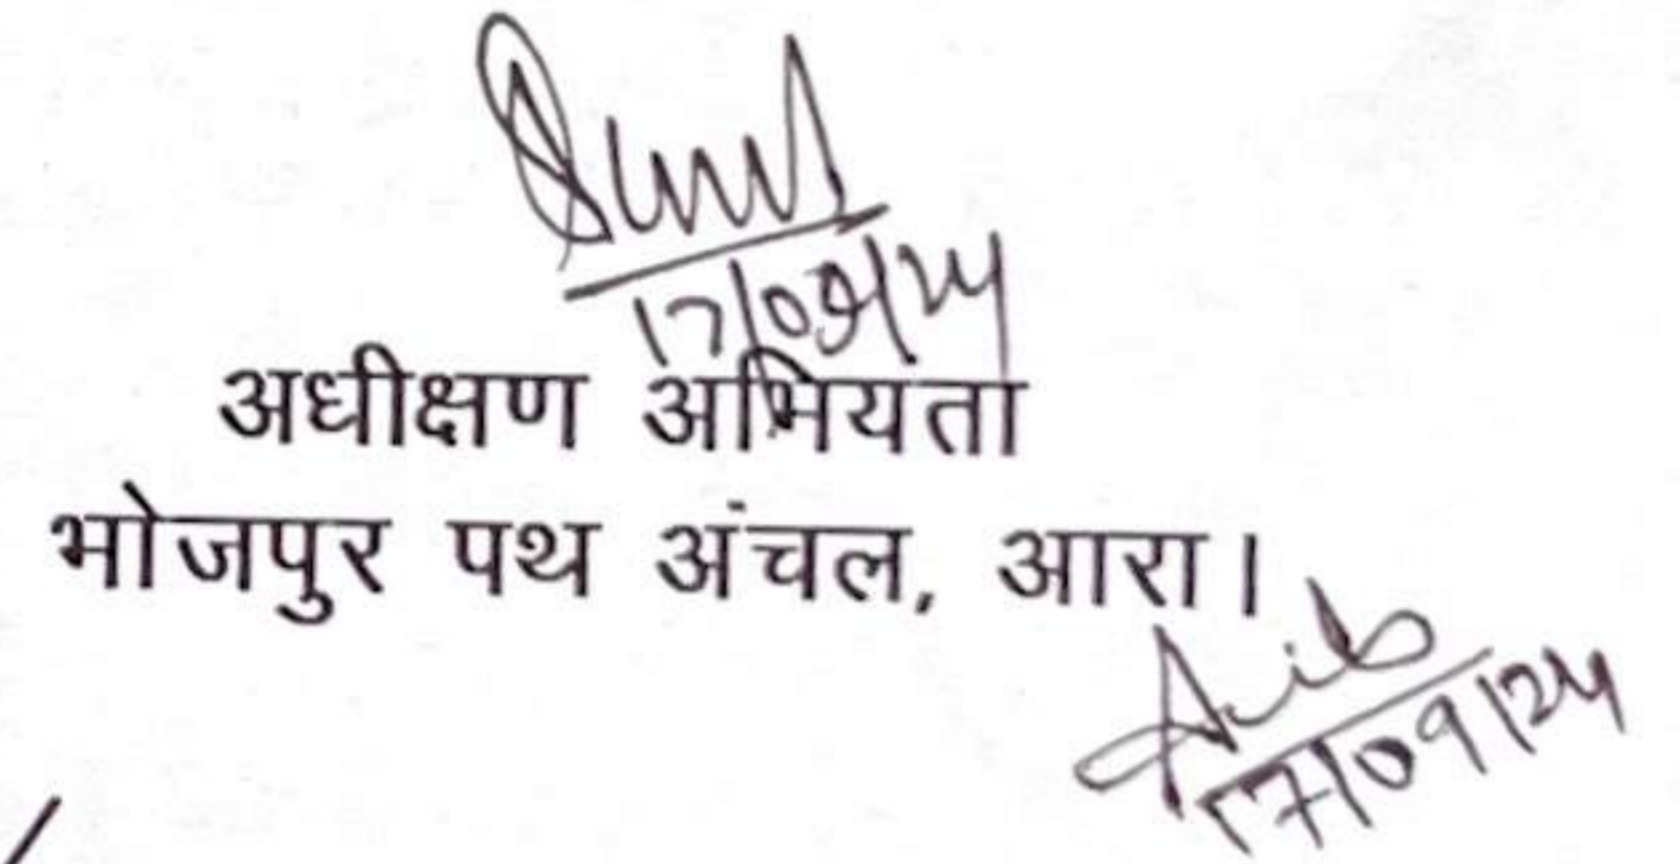 17/09/24
अधीक्षण अभियंता
भोजपुर पथ अंचल, आरा।
17/09/24